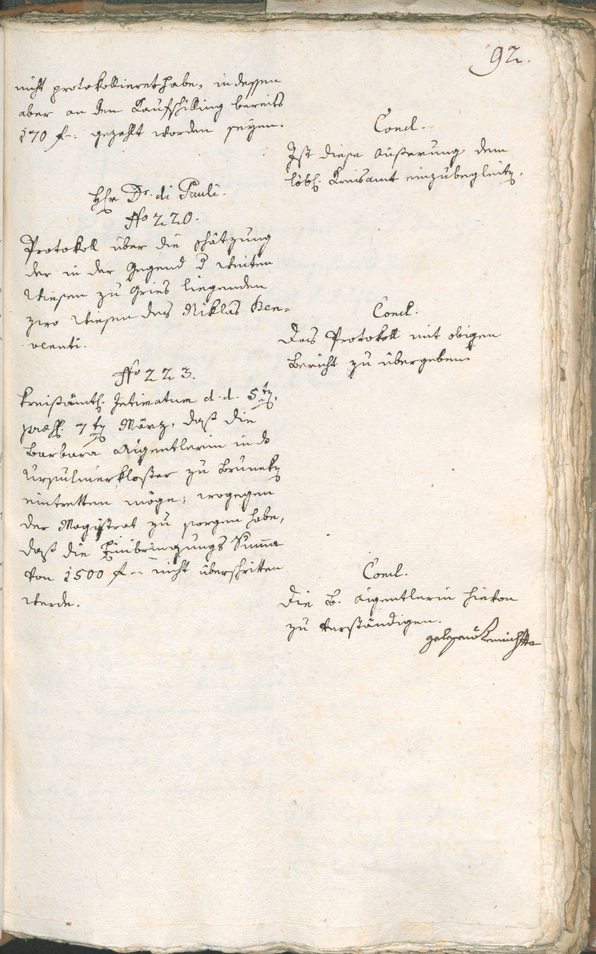 92.
nicht protokollieret habe, indessen
aber an den Kaufschilling bereits
170 f. gezahlt worden seÿen.
Concl.
Ist diese Äußerung dem
löbl. Kreisamt einzubegleitn.
Hr Dr. di Pauli.
No 220.
Protokoll über die Schätzung
der in der Gegend d weiten
Wiesen zu Gries liegenden
zwo Wiesen des Niklas Ben=
venuti.
Concl.
Das Protokoll mit obigen
Bericht zu übergeben.
No 223.
Kreisämtl. Intimatum d. d. 5tn
7tn März, daß die
Barbara Aigentlerin in ds
Ursulinerkloster zu Brunek
eintretten möge; wogegen
der Magistrat zu sorgen habe,
daß die Einbringungs Summa
von 1500 f. nicht überschritten
werde.
Concl.
Die B. Aigentlerin hievon
zu verständigen.